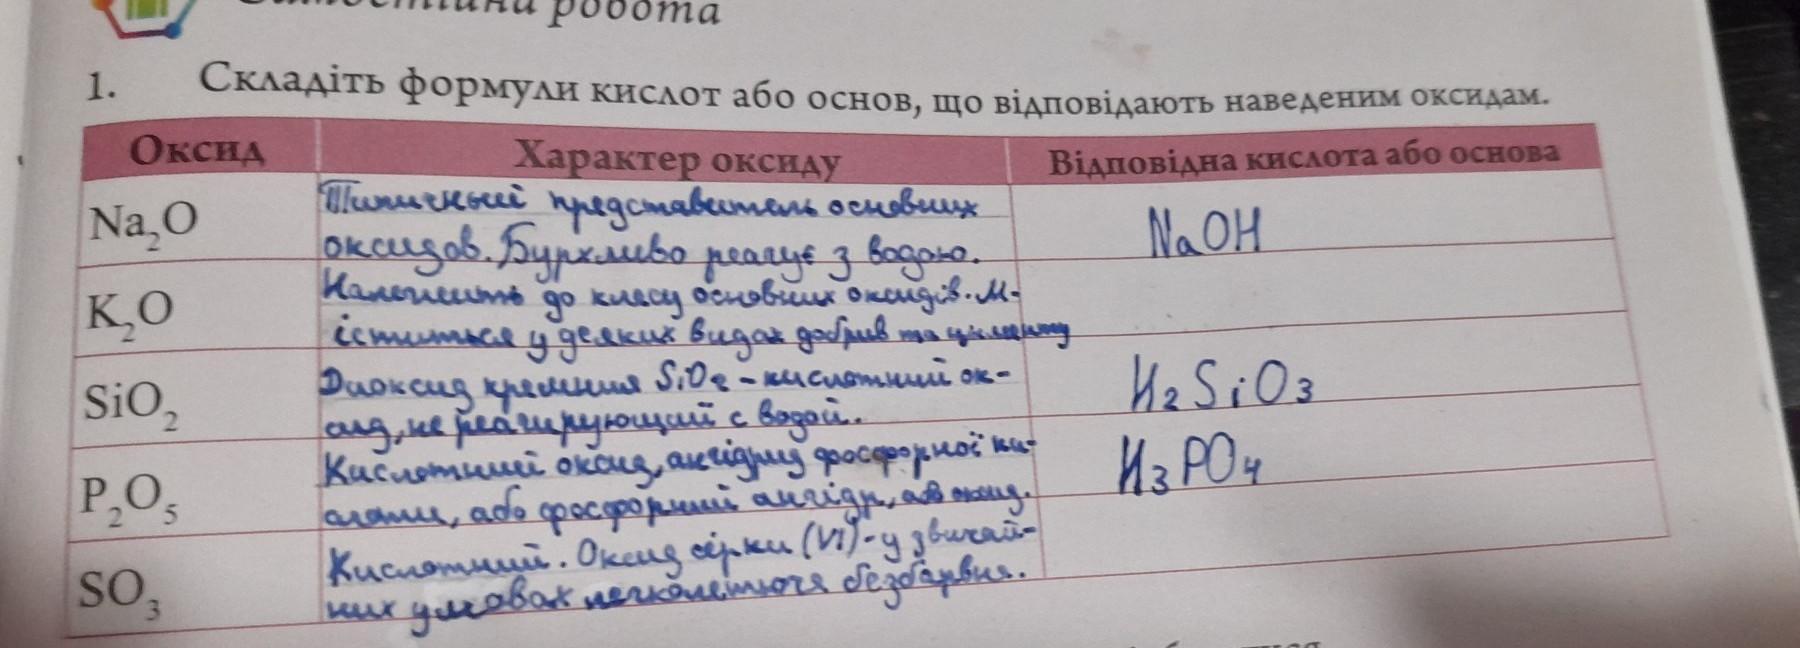 Самостійна робота
1. Складіть формули кислот або основ, що відповідають наведеним оксидам.
Оксид Характер оксиду Відповідна кислота або основа
Na₂O Типичный представитель основних
оксидов. Бурхливо реагує з водою. NaOH
K₂O Належить до класу основних оксидів. М-
іститься у деяких видах добрив та цименту
SiO₂ Диоксид кремния SiO₂ - кислотний ок-
сид, не реагирующий с водой. H₂SiO₃
P₂O₅ Кислотний оксид, ангідрид фосфорної ки-
слоти, або фосфорний ангідр, або оксид. H₃PO₄
SO₃ Кислотний. Оксид сірки (VI) - у звичай-
них умовах легколетюча безбарвна.